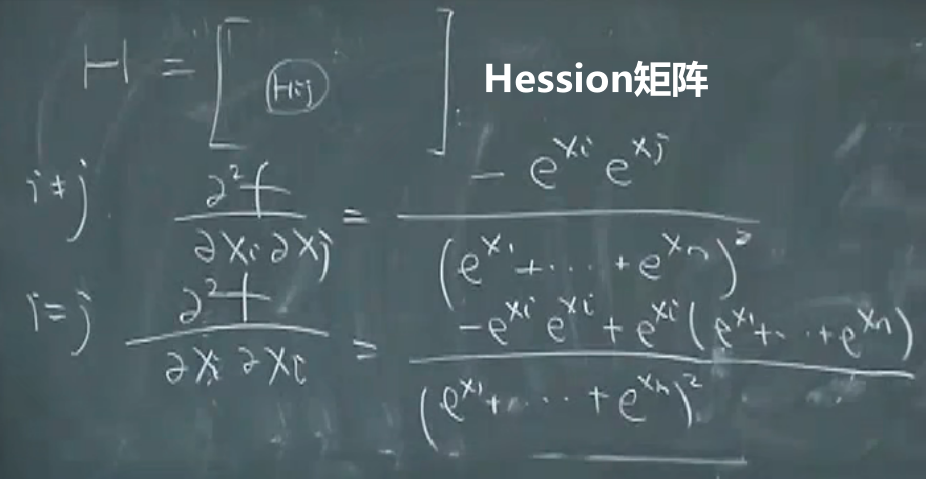 H = [ Hij ] Hession矩阵
i ≠ j ∂²f / ∂xi ∂xj = - e^xi e^xj / (e^x1 + ··· + e^xn)²
i = j ∂²f / ∂xi ∂xi = -e^xi e^xi + e^xi (e^x1 + ··· + e^xn) / (e^x1 + ··· + e^xn)²